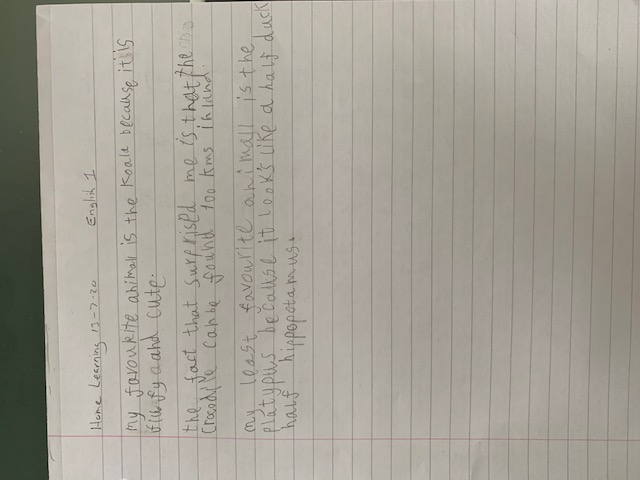 Home Learning 13-7-20 English 1
my favourite animall is the Koala because it is
fluffy aand cute.
the fact that surprised me is that the
Crocodile can be found 100 kms inland.
my least favourite animall is the
platypus because it look's like a half duck
half hippopotamus.